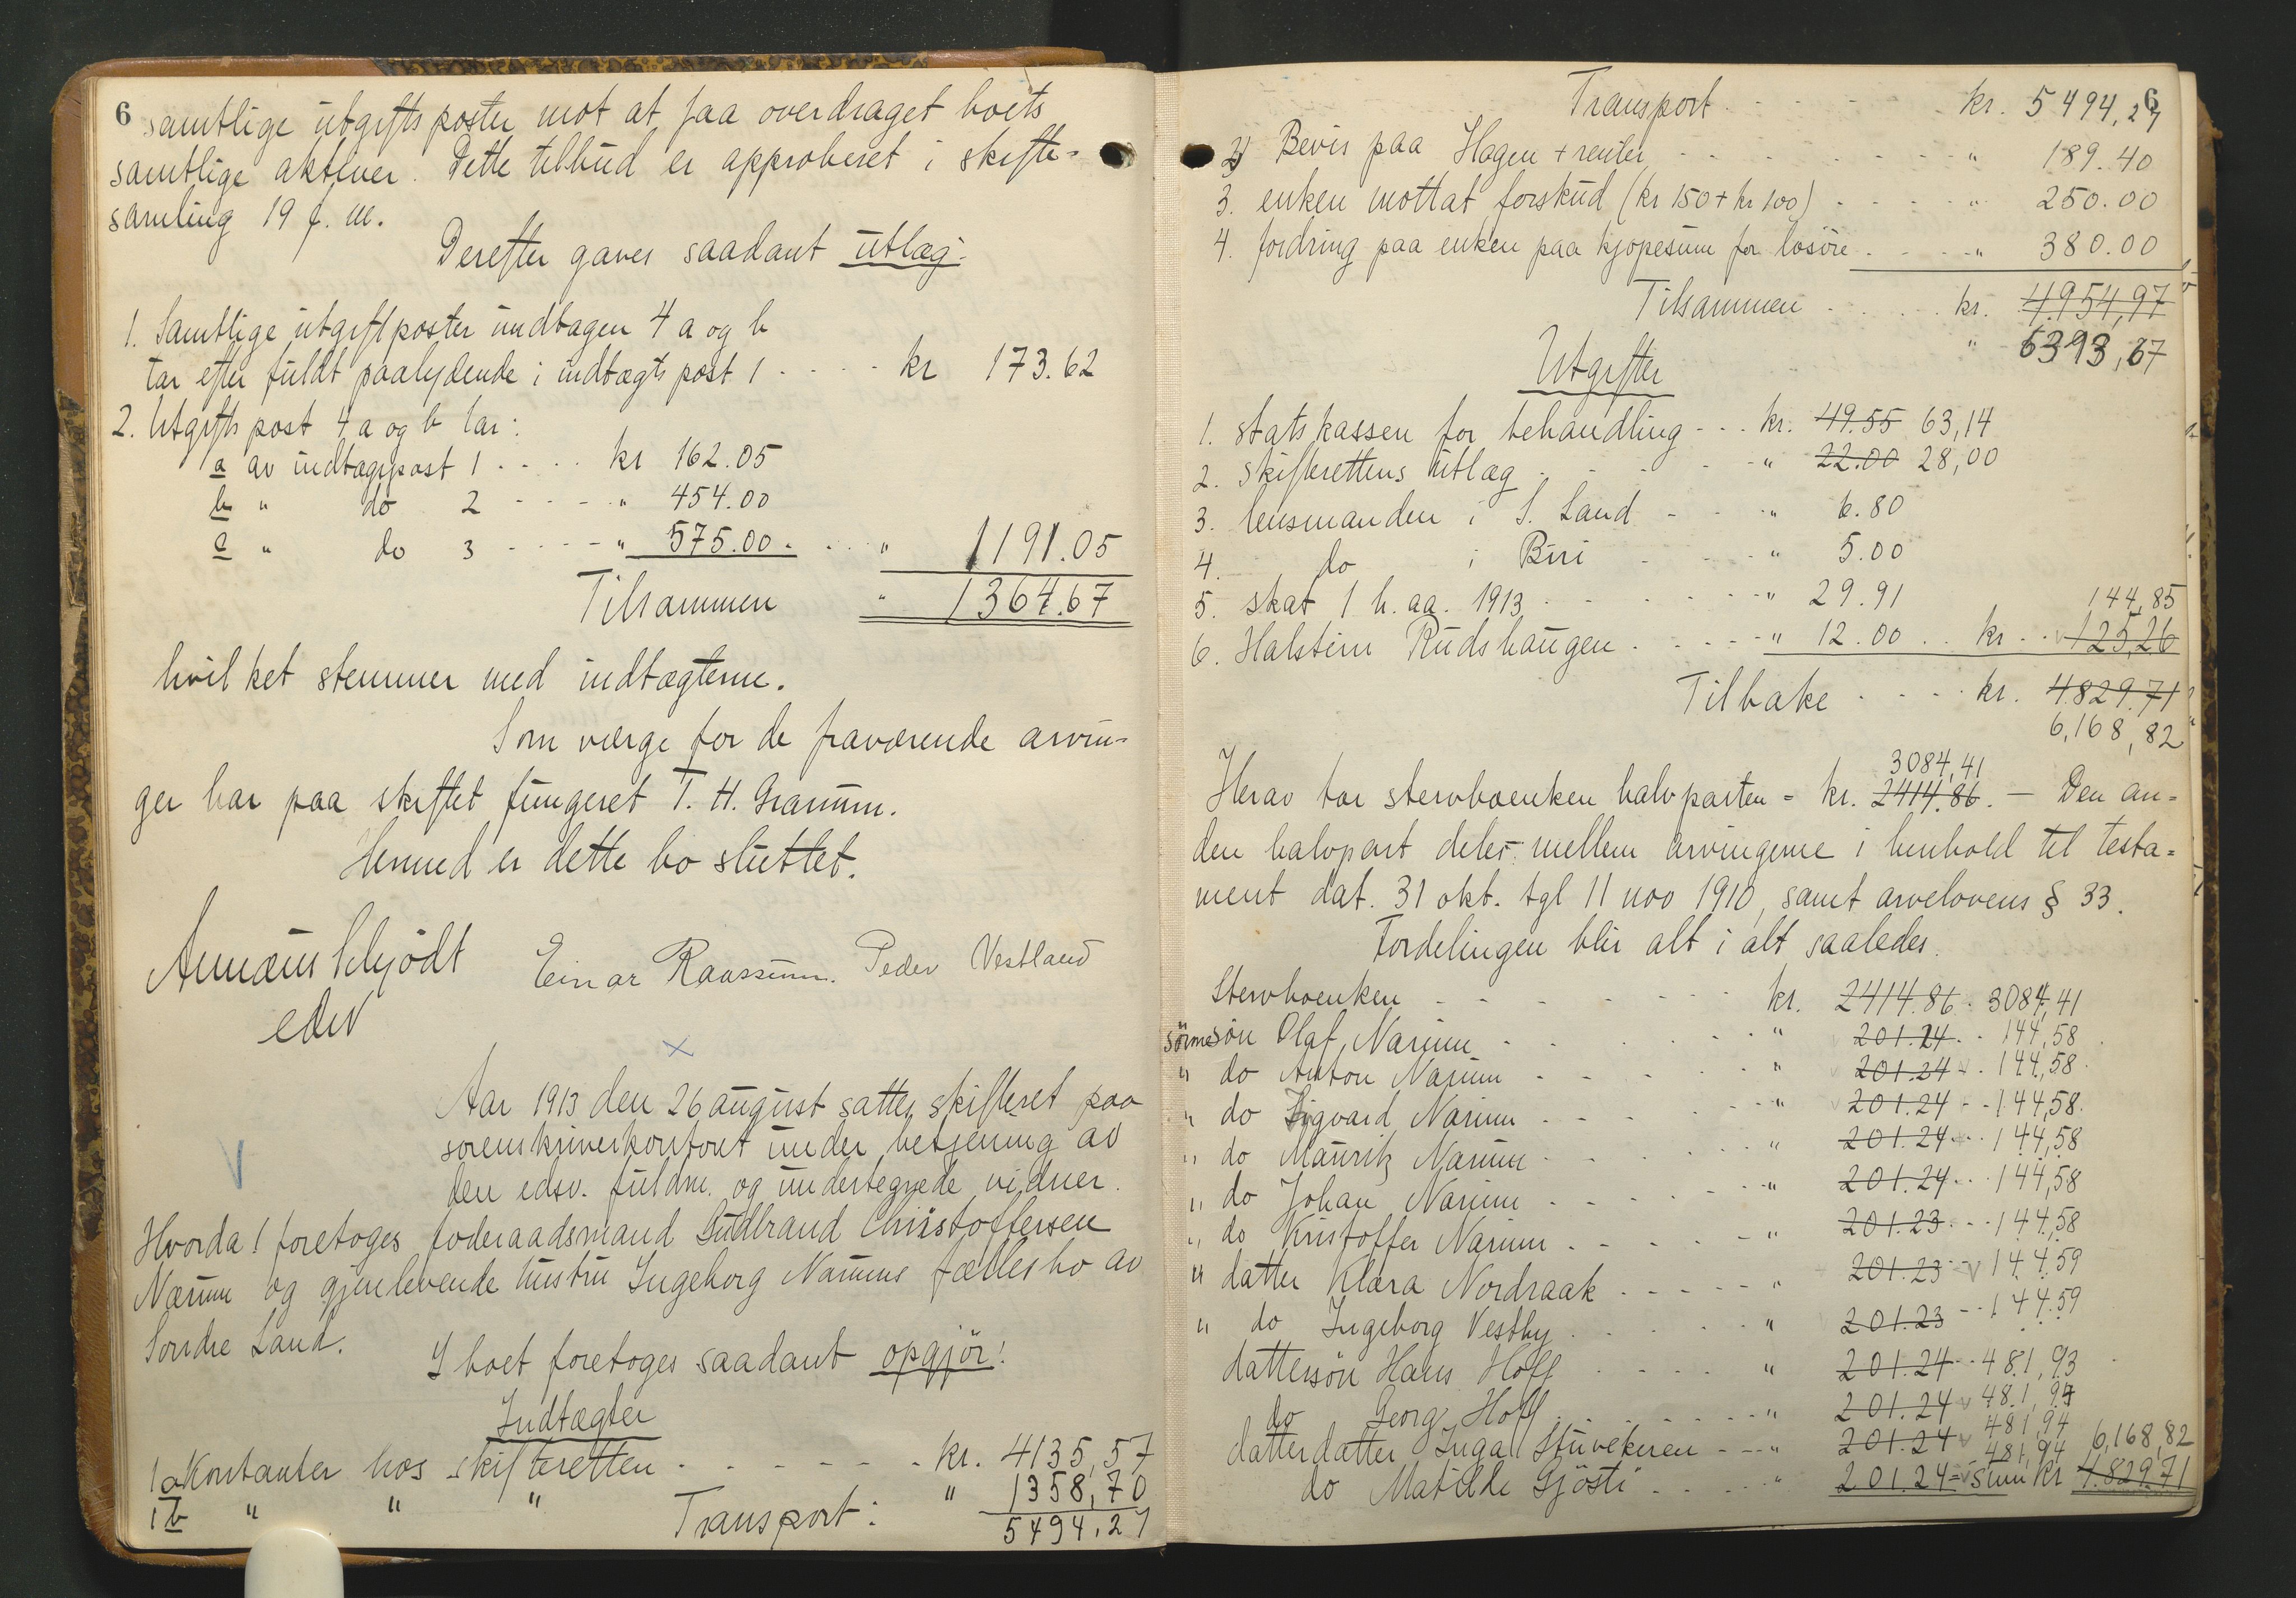 6
samtlige utgiftsposter mot at faa overdraget boets
samtlige aktiver. Dette tilbud er approberet i skifte-
samling 19 f. m.
Derefter gaves saadant utlæg:
1. Samtlige utgiftsposter undtagen 4 a og b
tar efter fuldt paalydende i indtægts post 1 - - - - kr 173.62
2. Utgifts post 4 a og b tar:
a av indtægtspost 1 - - - - kr 162.05
b " do 2 - - - - " 454.00
c " do 3 - - - - " 575.00. - - - " 1191.05
Tilsammen " 1364.67
hvilket stemmer med indtægterne.
Som værge for de fraværende arvin-
ger har paa skiftet fungeret T. H. Granum.
Hermed er dette bo sluttet.
Annæus Schjödt Einar Raassum. Peder Vestland
edsv
x
Aar 1913 den 26 august sattes skifteret paa
sorenskriverkontoret under betjening av
den edsv. fuldm. og undertegnede vidner.
V
Hvorda! foretoges foderaadsmand Gudbrand Christoffersen
Narum og gjenlevende hustru Ingeborg Narums fællesbo av
Søndre Land.
I boet foretoges saadant opgjör:
Indtægter
1a Kontanter hos skifteretten - - - - - - kr. 4135,57
1b " " " " 1358,70
Transport: 5494,27
6
Transport - - - - kr. 5494,27
2) Bevis paa Hagen + renter - - - - - - " 189.40
3. enken mottat forskud (kr 150 + kr 100) - - - - " 250.00
4. fordring paa enken paa kjøpesum for løsöre - - - - " 380.00
Tilsammen - - - - kr. 4954,97
" 6313,67
Utgifter
1. statskassen for behandling - - - kr. 49.55 63,14
2. skifterettens utlæg - - - - " 22.00 28,00
3. lensmanden i S. Land - - - " 6.80
4. do i Biri - - - " 5.00
5. skat 1 h. aa. 1913 - - - - - - " 29.91 144,85
6. Halstein Rudshaugen - - - - " 12.00 . . kr . . 125,26
Tilbake - - - - kr. 4829.71
6,168,82
3084,41
Herav tar stervboenken halvparten = kr. 2414.86. — Den an-
den halvpart deles mellem arvingerne i henhold til testa-
ment dat. 31 okt. tgl 11 nov 1910, samt arvelovens § 33.
Fordelingen blir alt i alt saaledes.
Stervboenken - - - - - - - - kr. 2414.86. 3084,41
sönnesön Olaf Narum - - - - - - " 201.24 - - 144,58
" do Anton Narum - - - - - " 201.24 - 144,58
" do Sigvard Narum - - - - - " 201.24 - - 144,58
" do Mauritz Narum - - - - - " 201.24 - - 144,58
" do Johan Narum - - - - - " 201.24 - - 144,58
" do Kristoffer Narum - - - - - " 201.23 - - 144,58
" datter Klara Nordraak - - - - - " 201.23 - 144.59
" do Ingeborg Vestby - - - - - " 201.23 - - 144.59
dattersön Hans Hoff - - - - " 201.24 - - 481,93
do Georg Hoff - - - - - - " 201.24 481,94
datterdatter Inga Stuvekeren - - - " 201.24 481,94 6,168,82
do Matilde Gjösti - - - - " 201.24 = 481,94 sum kr 4.829.71